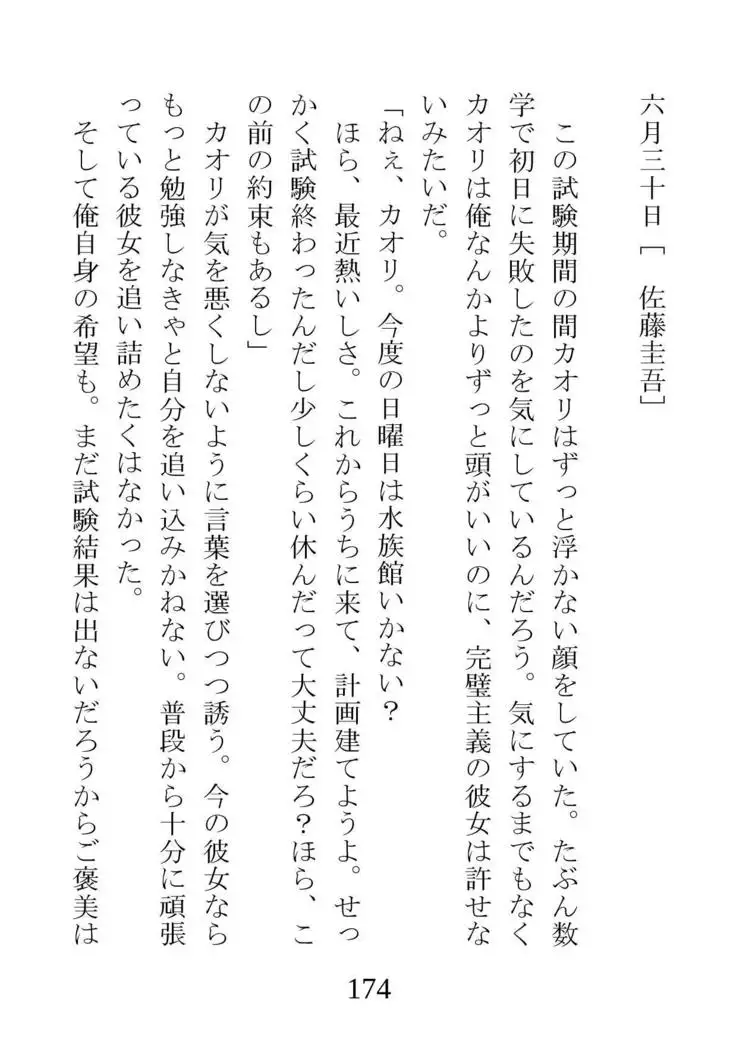 六月三十日［　佐藤圭吾］
　この試験期間の間カオリはずっと浮かない顔をしていた。たぶん数
学で初日に失敗したのを気にしているんだろう。気にするまでもなく
カオリは俺なんかよりずっと頭がいいのに、完璧主義の彼女は許せな
いみたいだ。
「ねぇ、カオリ。今度の日曜日は水族館いかない？
　ほら、最近熱いしさ。これからうちに来て、計画建てようよ。せっ
かく試験終わったんだし少しくらい休んだって大丈夫だろ？ほら、こ
の前の約束もあるし」
　カオリが気を悪くしないように言葉を選びつつ誘う。今の彼女なら
もっと勉強しなきゃと自分を追い込みかねない。普段から十分に頑張
っている彼女を追い詰めたくはなかった。
　そして俺自身の希望も。まだ試験結果は出ないだろうからご褒美は
174